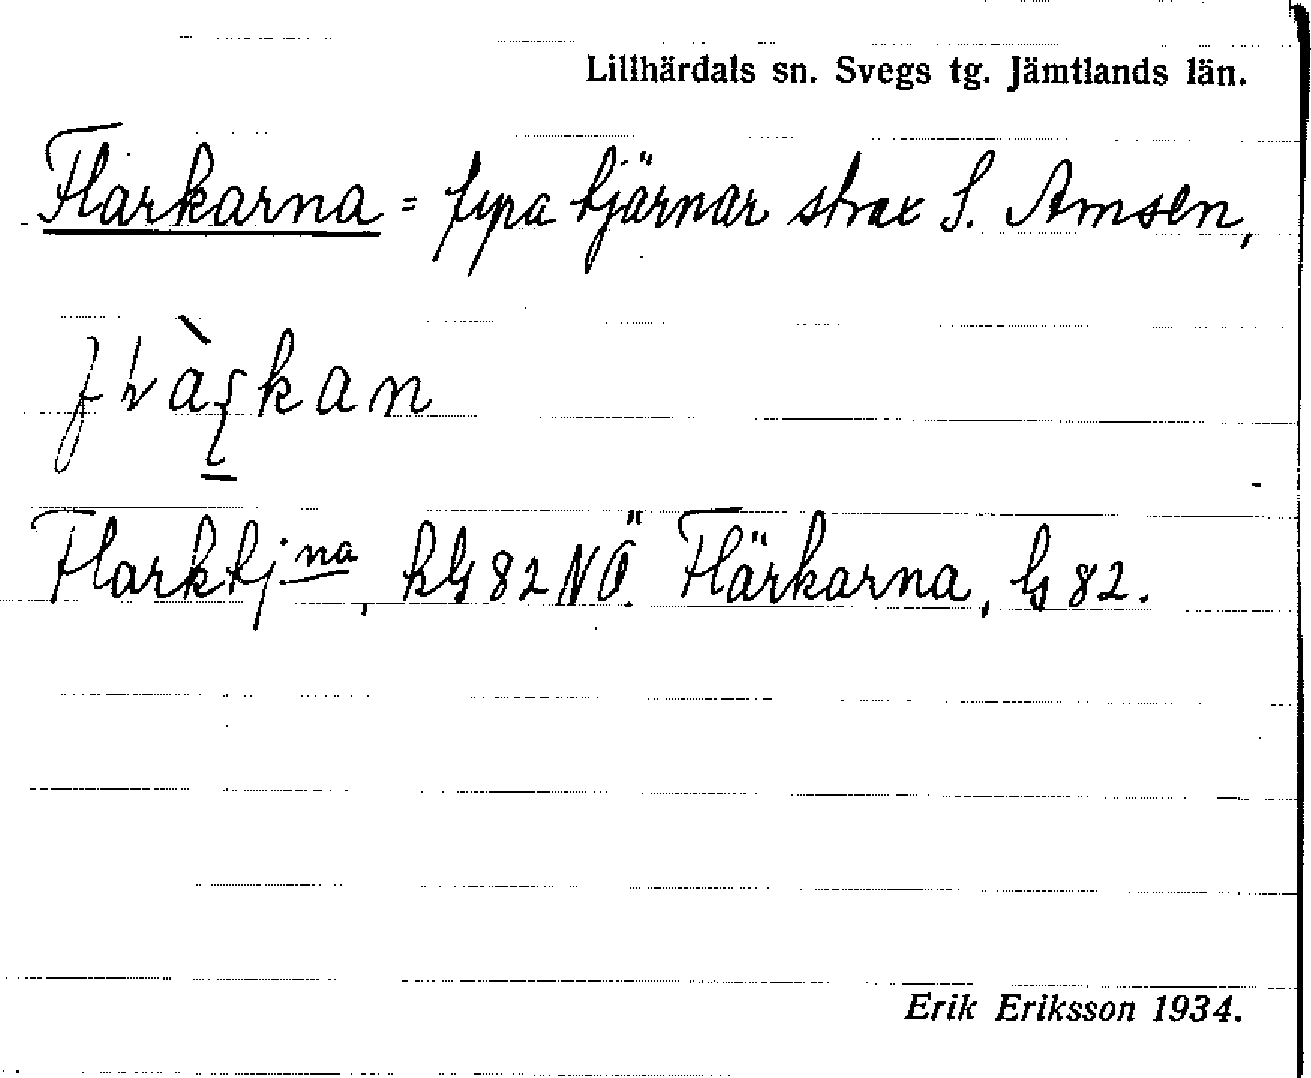 Lillhärdals sn. Svegs tg. Jämtlands län.
Flarkarna = fyra tjärnar strax S. Amsen,
Flarktjna, kG 82 NÖ. Flärkarna, G 82.
Erik Eriksson 1934.